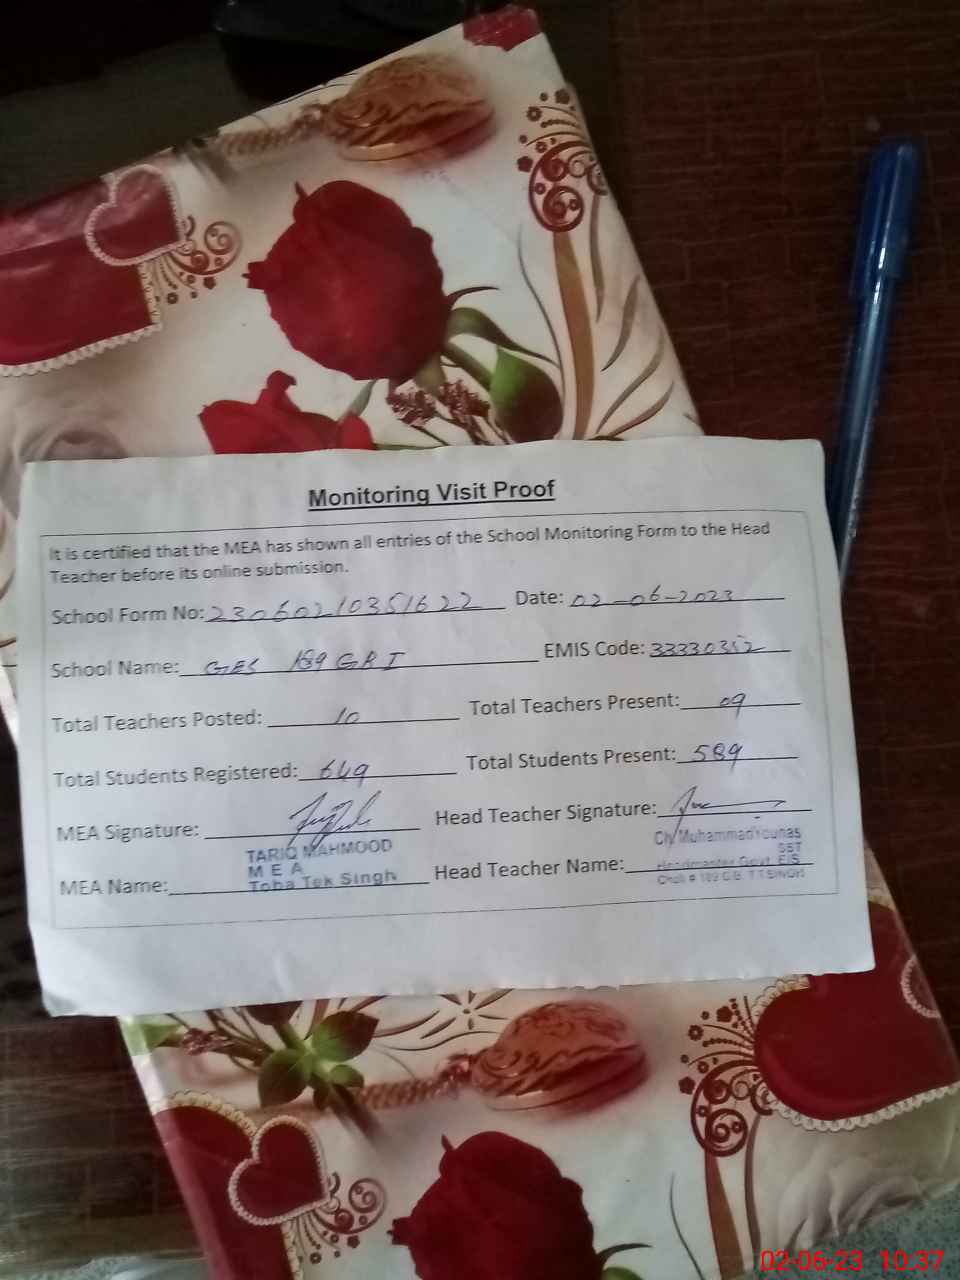 Monitoring Visit Proof
It is certified that the MEA has shown all entries of the School Monitoring Form to the Head
Teacher before its online submission.
School Form No: 23060210351622 Date: 02-06-2023
School Name: GES 189 GB I EMIS Code: 33330352
Total Teachers Posted: 10 Total Teachers Present: 09
Total Students Registered: 649 Total Students Present: 589
MEA Signature: Head Teacher Signature:
TARIQ MAHMOOD
M E A
Toba Tek Singh
MEA Name: Head Teacher Name:
Ch Muhammad Younas
SST
Headmaster Govt. E/S
Chak # 189 G.B. T.T.SINGH
02-06-23 10:37